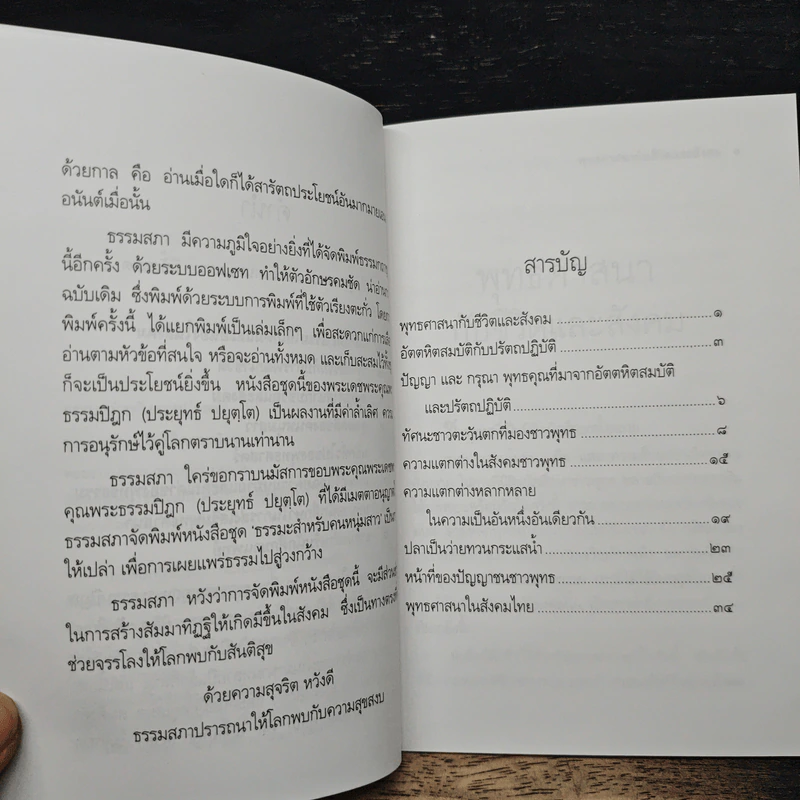 ด้วยกาล คือ อ่านเมื่อใดก็ได้สารัตถประโยชน์อันมากมาย
อนันต์เมื่อนั้น
ธรรมสภา มีความภูมิใจอย่างยิ่งที่ได้จัดพิมพ์
นี้อีกครั้ง ด้วยระบบออฟเซท ทำให้ตัวอักษรคมชัด
ฉบับเดิม ซึ่งพิมพ์ด้วยระบบการพิมพ์ที่ใช้ตัวเรียงตะกั่ว
พิมพ์ครั้งนี้ ได้แยกพิมพ์เป็นเล่มเล็กๆ เพื่อสะดวกแก่
อ่านตามหัวข้อที่สนใจ หรือจะอ่านทั้งหมด และเก็บสะสมไว้
ก็จะเป็นประโยชน์ยิ่งขึ้น หนังสือชุดนี้ของพระเดชพระคุณ
ธรรมปิฎก (ประยุทธ์ ปยุตฺโต) เป็นผลงานที่มีค่าล้ำเลิศ
การอนุรักษ์ไว้คู่โลกตราบนานเท่านาน
ธรรมสภา ใคร่ขอกราบนมัสการขอบพระคุณพระเดช
คุณพระธรรมปิฎก (ประยุทธ์ ปยุตฺโต) ที่ได้มีเมตตา
ธรรมสภาจัดพิมพ์หนังสือชุด 'ธรรมะสำหรับคนหนุ่มสาว'
ให้เปล่า เพื่อการเผยแพร่ธรรมไปสู่วงกว้าง
ธรรมสภา หวังว่าการจัดพิมพ์หนังสือชุดนี้ จะมีส่วน
ในการสร้างสัมมาทิฏฐิให้เกิดมีขึ้นในสังคม ซึ่งเป็นทาง
ช่วยจรรโลงให้โลกพบกับสันติสุข
ด้วยความสุจริต หวังดี
ธรรมสภาปรารถนาให้โลกพบกับความสุขสงบ
สารบัญ
พุทธศาสนากับชีวิตและสังคม ๑
อัตตหิตสมบัติกับปรัตถปฏิบัติ ๓
ปัญญา และ กรุณา พุทธคุณที่มาจากอัตตหิตสมบัติ
และปรัตถปฏิบัติ ๖
ทัศนะชาวตะวันตกที่มองชาวพุทธ ๘
ความแตกต่างในสังคมชาวพุทธ ๑๕
ความแตกต่างหลากหลาย
ในความเป็นอันหนึ่งอันเดียวกัน ๑๙
ปลาเป็นว่ายทวนกระแสน้ำ ๒๓
หน้าที่ของปัญญาชนชาวพุทธ ๒๕
พุทธศาสนาในสังคมไทย ๓๔